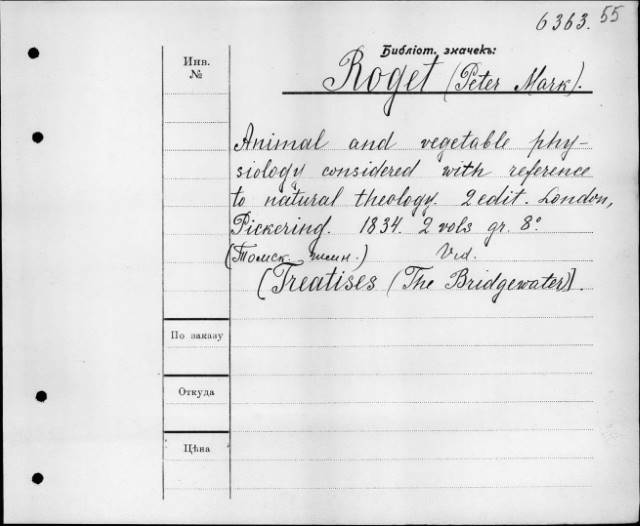 6363. 55
Библіот. значекъ:
Инв.
№
Roget (Peter Mark).
Animal and vegetable phy-
siology considered with reference
to natural theology. 2 edit. London,
Pickering. 1834. 2 vols gr. 8º
(Томск. гимн.) Vid.
[Treatises (The Bridgewater)].
По заказу
Откуда
Цѣна